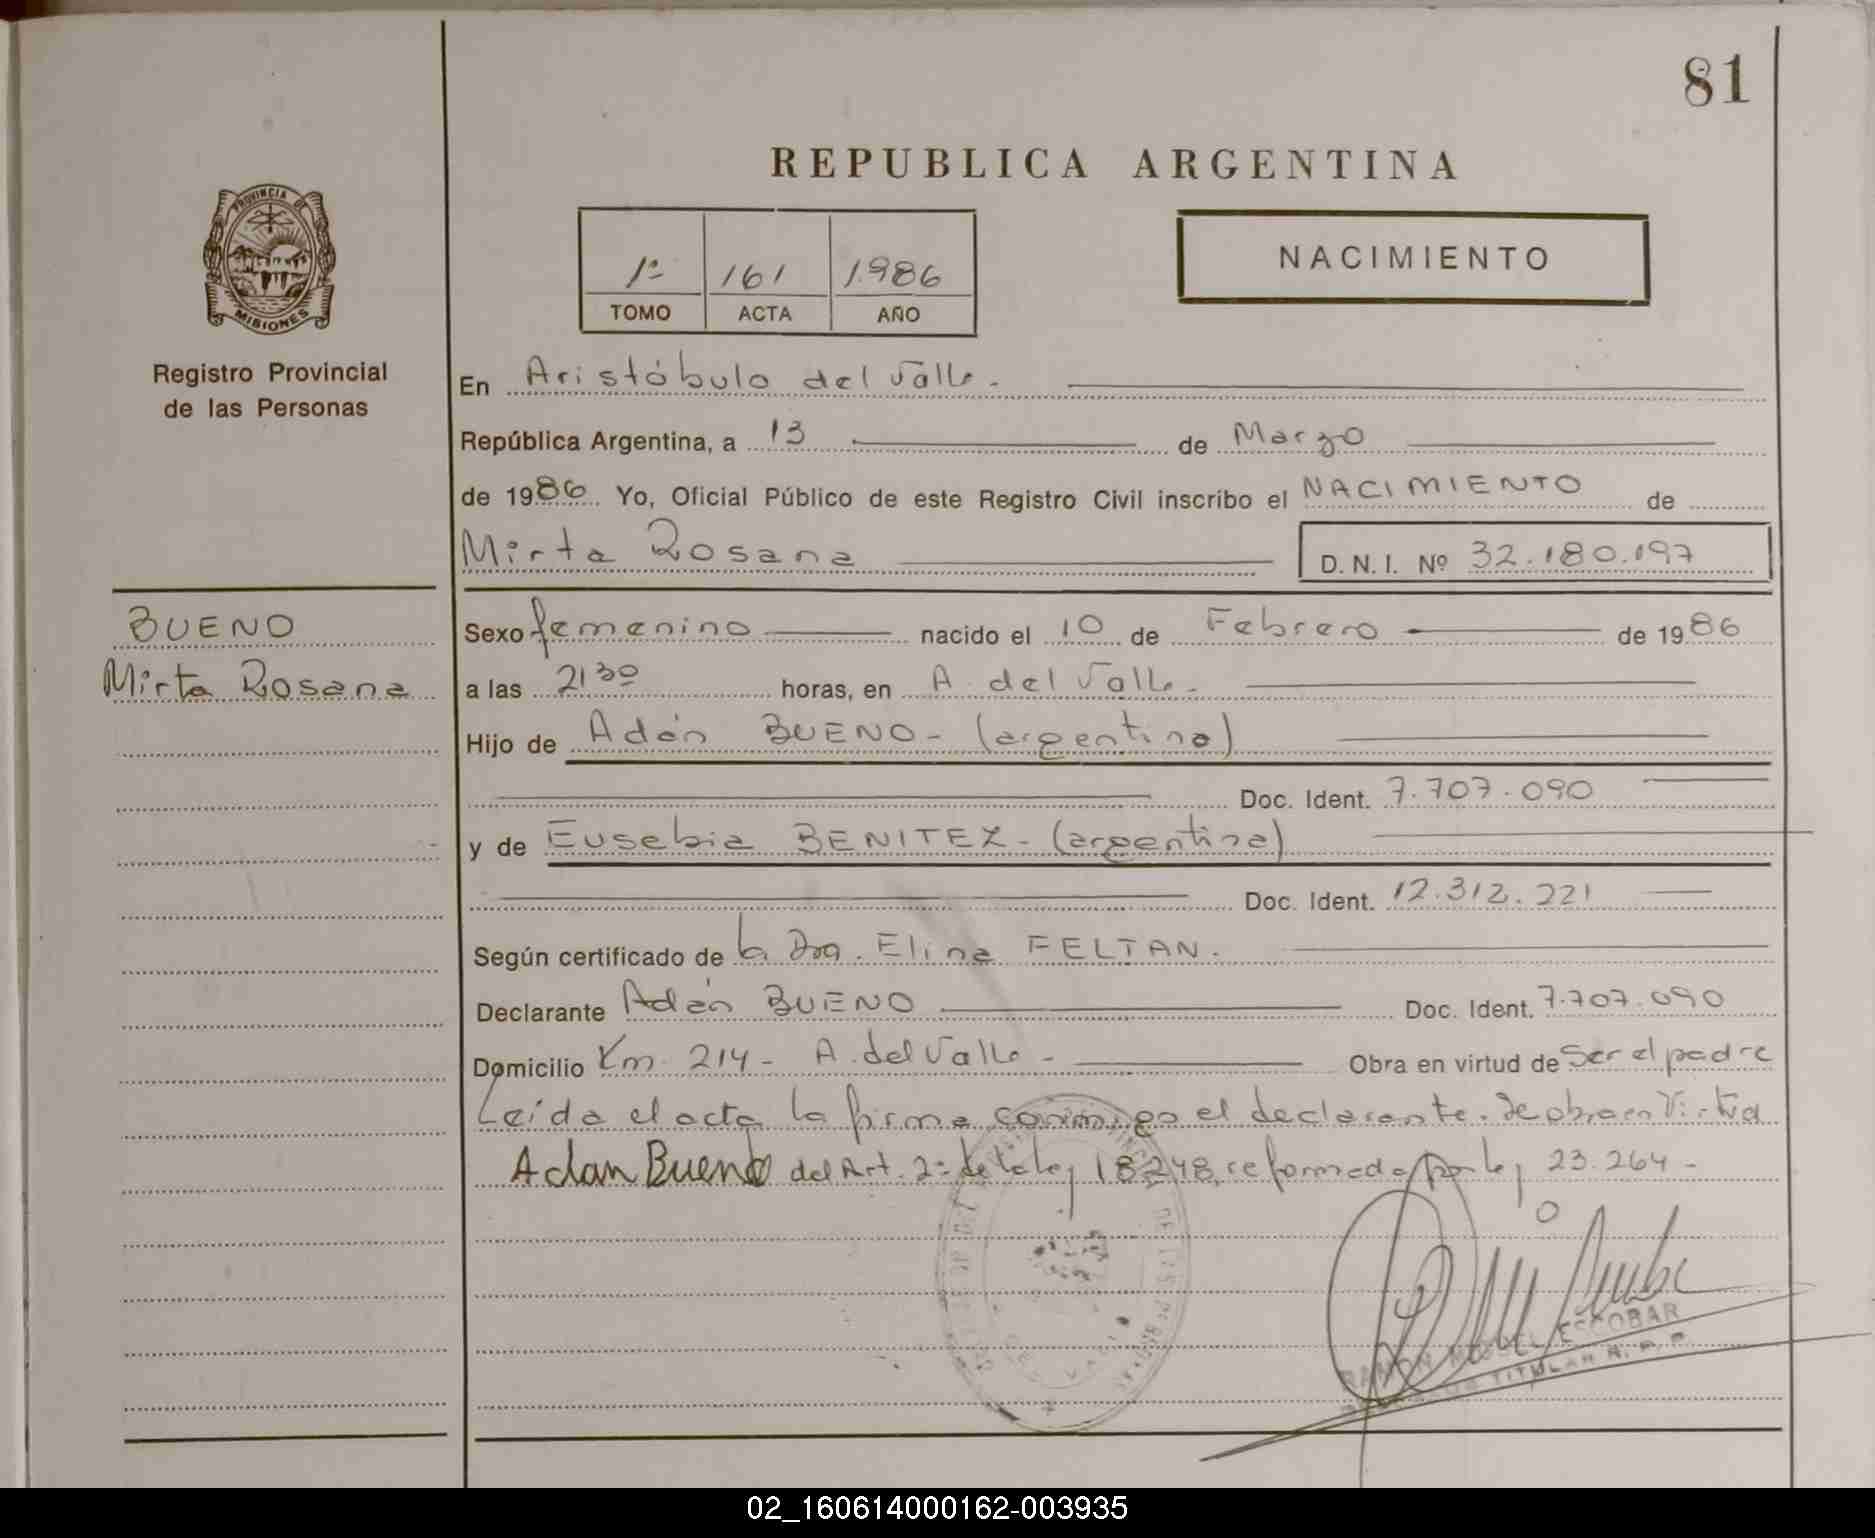 81
REPUBLICA ARGENTINA
PROVINCIA DE
MISIONES
Registro Provincial
de las Personas
1º 161 1986
TOMO ACTA AÑO
NACIMIENTO
En Aristóbulo del Valle.
República Argentina, a 13 de Marzo
de 1986 Yo, Oficial Público de este Registro Civil inscribo el NACIMIENTO de
Mirta Rosana D.N.I. Nº 32.180.197
BUENO
Mirta Rosana
Sexo femenino nacido el 10 de Febrero de 1986
a las 2130 horas, en A. del Valle.
Hijo de Adán BUENO - (argentino)
Doc. Ident. 7.707.090
y de Eusebia BENITEZ - (argentina)
Doc. Ident. 12.312.221
Según certificado de la Dra. Elina FELTAN.
Declarante Adán BUENO Doc. Ident. 7.707.090
Domicilio Km. 214 - A. del Valle - Obra en virtud de Ser el padre
Leída el acta la firma conmigo el declarante. Se obra en Virtud
Adan Bueno del Art. 2º de la ley 18.248, reformada por ley 23.264 -
RAMON MIGUEL ESCOBAR
TITULAR R. P. P.
02_160614000162-003935